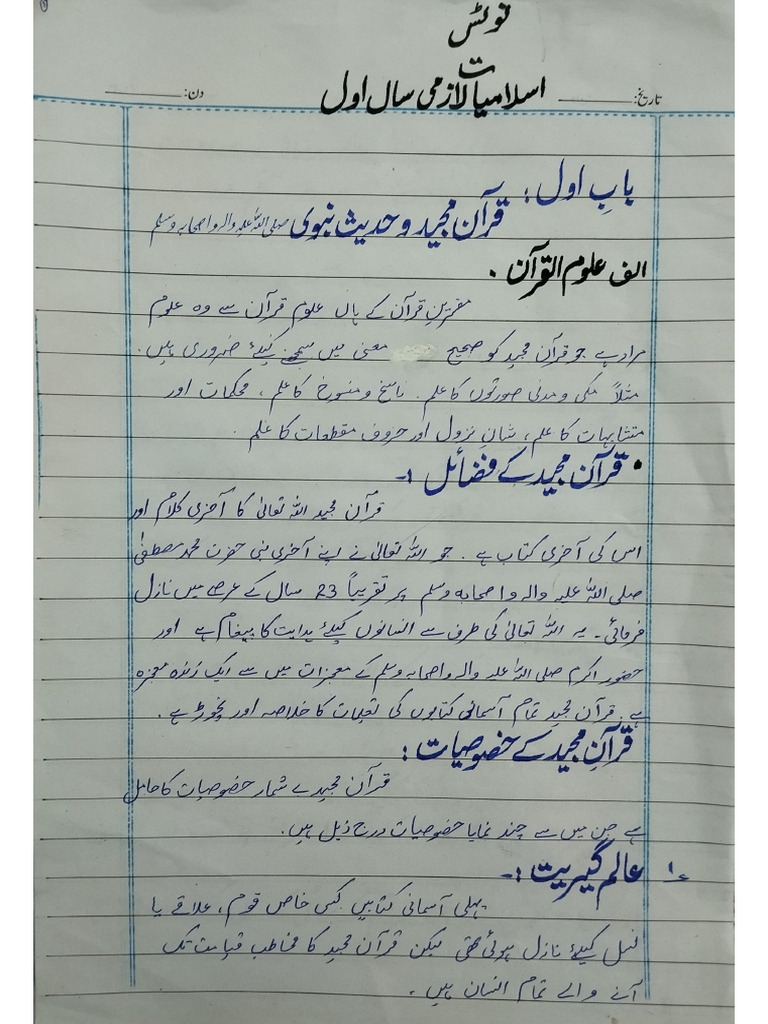 نوٹس
اسلامیات لازمی سال اول
تاریخ: ________ دن: ________
باب اول:
قرآن مجید و حدیث نبوی صلی اللہ علیہ والہ واصحابہ وسلم
الف علوم القرآن .
مفسرین قرآن کے ہاں علوم قرآن سے وہ علوم
مراد ہے جو قرآن مجید کو صحیح معنی میں سمجھنے کیلئے ضروری ہیں.
مثلاً مکی و مدنی صورتوں کا علم، ناسخ و منسوخ کا علم، محکمات اور
متشابہات کا علم، شان نزول اور حروف مقطعات کا علم.
• قرآن مجید کے فضائل :-
قرآن مجید اللہ تعالیٰ کا آخری کلام اور
اس کی آخری کتاب ہے. جو اللہ تعالیٰ نے اپنے آخری نبی حضرت محمد مصطفیٰ
صلی اللہ علیہ والہ واصحابہ وسلم پر تقریباً 23 سال کے عرصے میں نازل
فرمائی۔ یہ اللہ تعالیٰ کی طرف سے انسانوں کیلئے ہدایت کا پیغام ہے اور
حضور اکرم صلی اللہ علیہ والہ واصحابہ وسلم کے معجزات میں سے ایک زندہ معجزہ
ہے. قرآن مجید تمام آسمانی کتابوں کی تعلیمات کا خلاصہ اور نچوڑ ہے.
قرآن مجید کے خصوصیات :
قرآن مجید بے شمار خصوصیات کا حامل
ہے جن میں سے چند نمایا خصوصیات درج ذیل ہیں.
۱. عالم گیریت :-
پہلی آسمانی کتابیں کسی خاص قوم، علاقے یا
نسل کیلئے نازل ہوئی تھی لیکن قرآن مجید کا مخاطب قیامت تک
آنے والے تمام انسان ہیں.